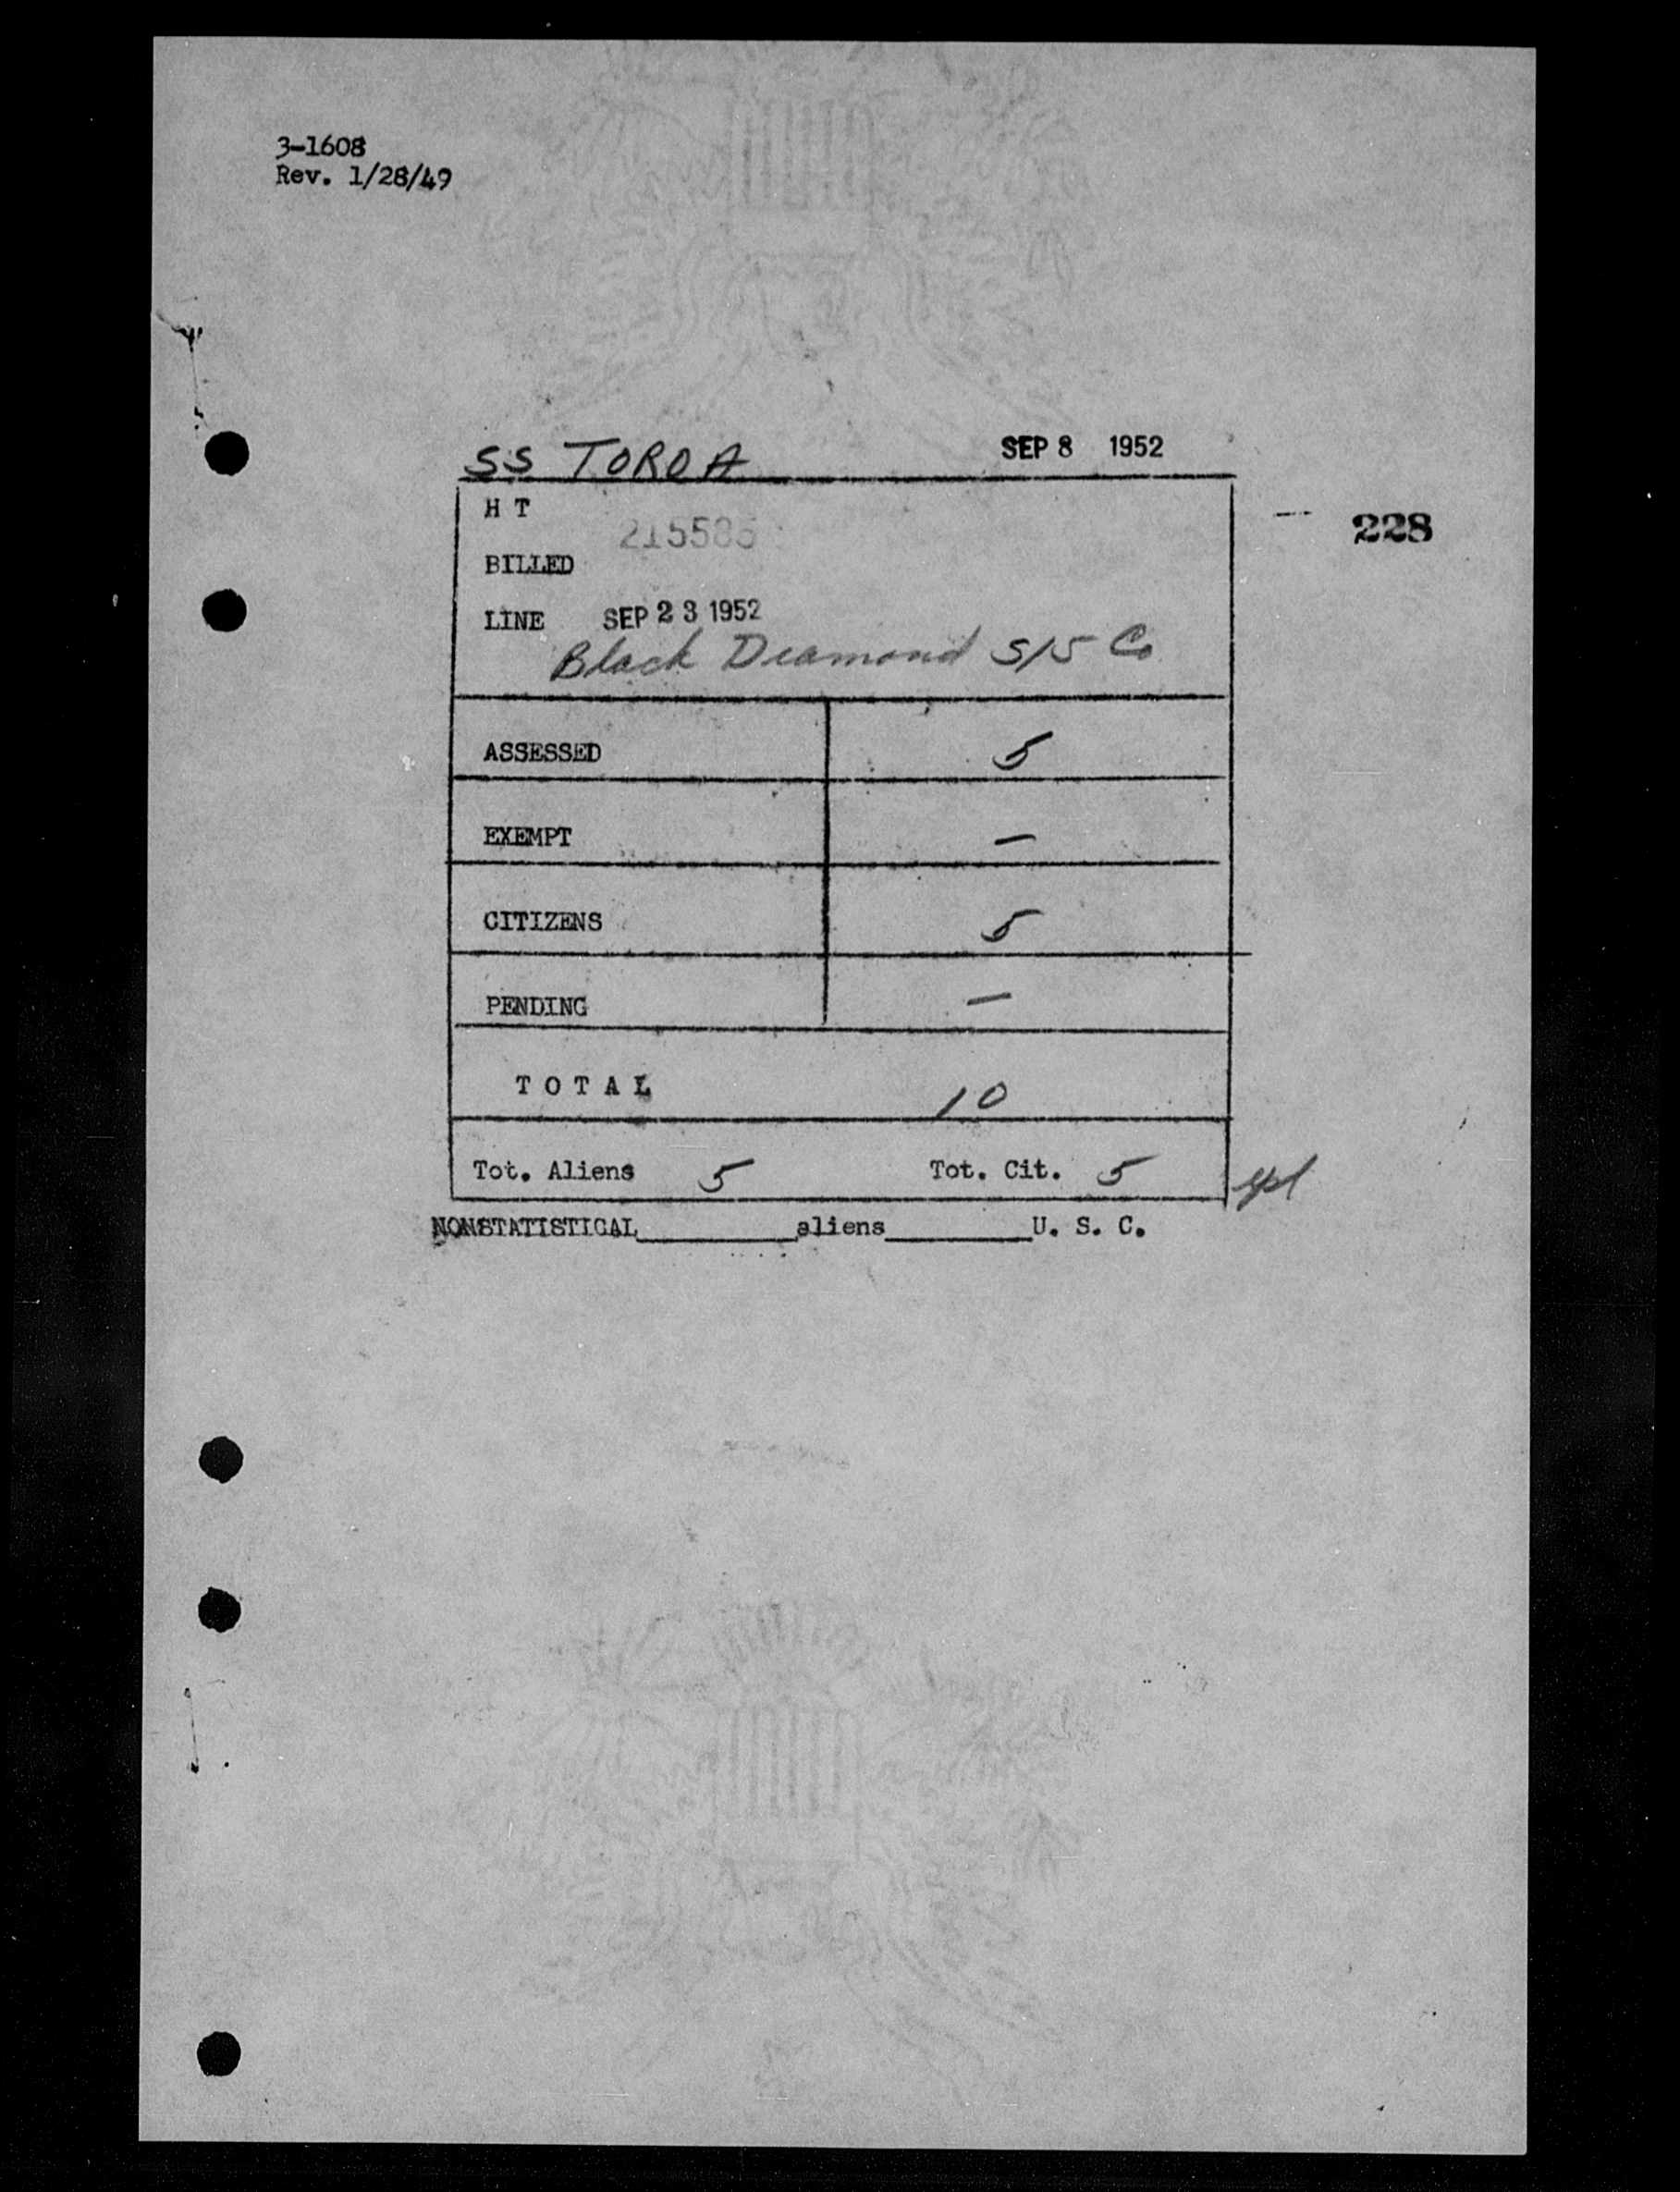 3-1608
Rev. 1/28/49
SS TOROA SEP 8 1952
H T
228
BILLED
LINE SEP 23 1952
Black Diamond S/S Co
ASSESSED 5
EXEMPT –
CITIZENS 5
PENDING –
T O T A L 10
Tot. Aliens 5 Tot. Cit. 5
NONSTATISTICAL________aliens________U. S. C.